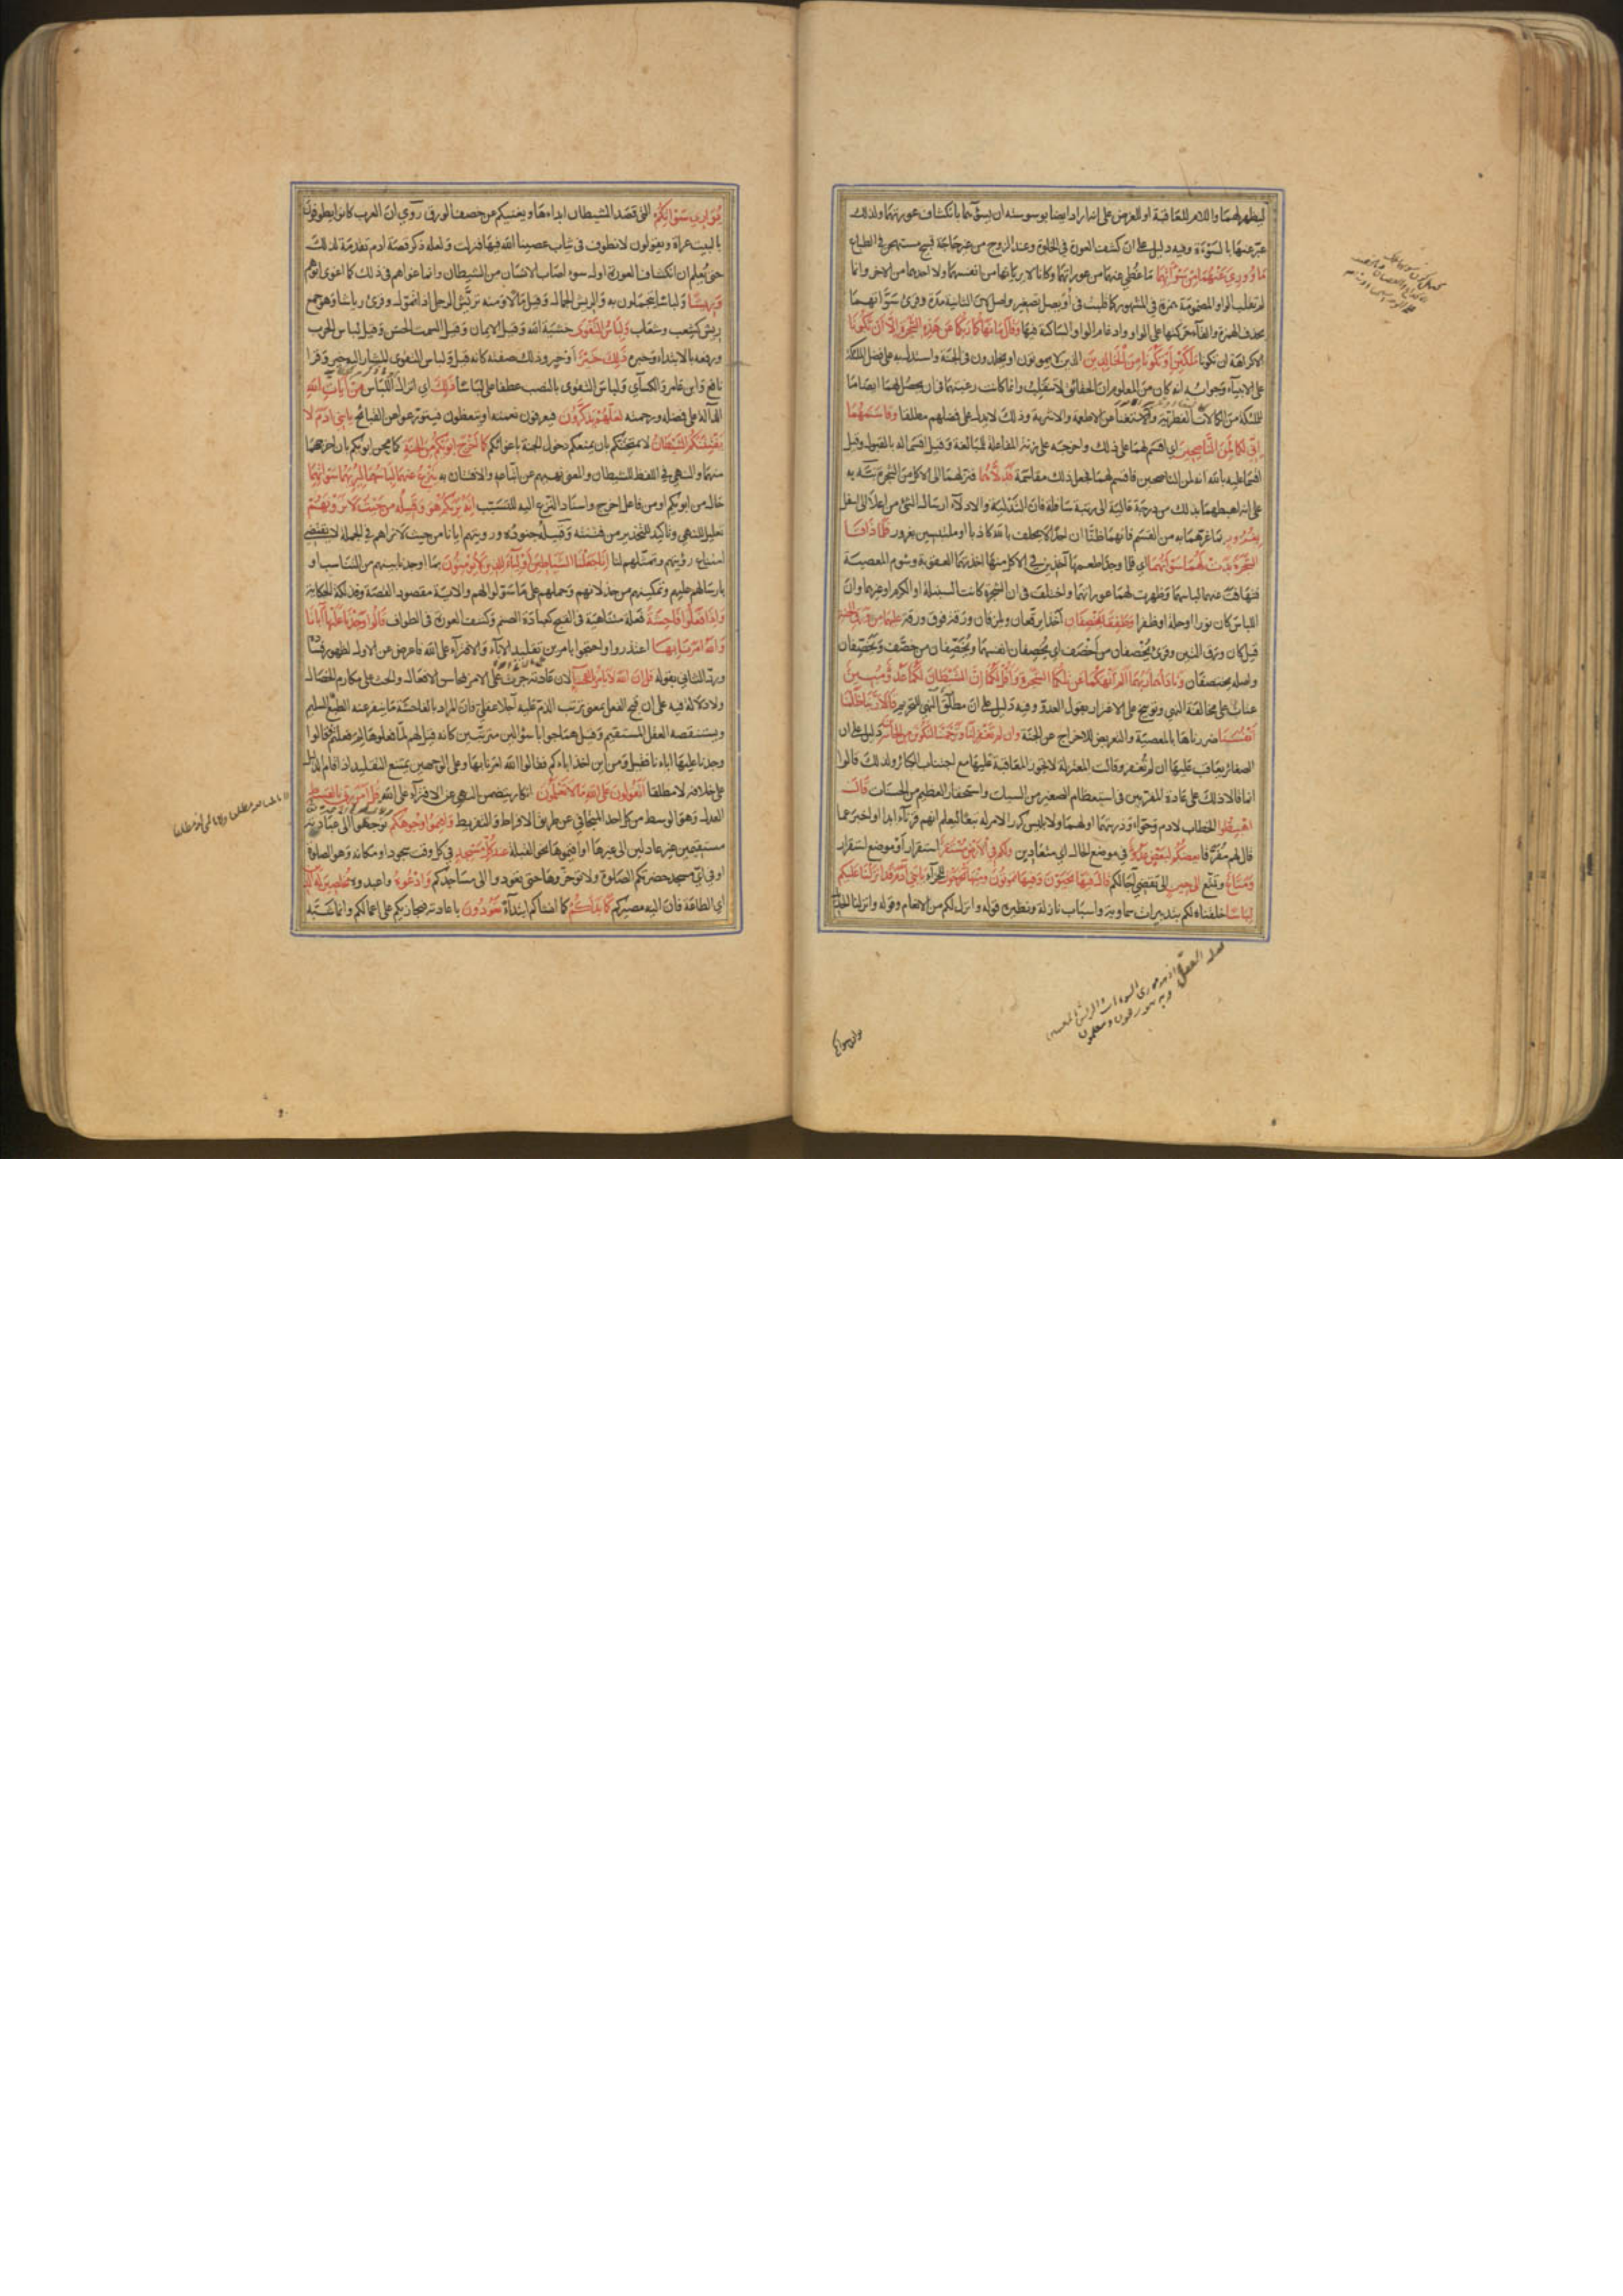 ليظهر لهما واللام للعاقبة او للغرض على انه اراد ايضا بوسوسته ان يسوءهما بانكشاف عورتيهما ولذلك
عبر عنهما بالسوءة وفيه دليل على ان كشف العورة في الخلوة وعند الزوج من غير حاجة قبيح مستهجن في الطباع
ما ووري عنهما من سوآتهما ما غطي عنهما من عوراتهما وكانا لا يريانها من انفسهما ولا احدهما من الاخر وانما
لم تقلب الواو المضمومة همزة في المشهور كما قلبت في اويصل تصغير واصل لان الثانية مدة وقرئ سواتهما
بحذف الهمزة والقاء حركتها على الواو وادغام الواو الساكنة فيها وقال ما نهاكما ربكما عن هذه الشجرة الا ان تكونا
الا كراهة ان تكونا ملكين او تكونا من الخالدين الذين لا يموتون او يخلدون في الجنة واستدل به على فضل الملائكة
على الانبياء وجوابه انه كان من المعلوم ان الحقائق لا تنقلب وانما كانت رغبتهما في ان يحصل لهما ايضا ما
للملائكة من الكمالات الفطرية والاستغناء عن الاطعمة والاشربة وذلك لا يدل على فضلهم مطلقا وقاسمهما
اني لكما لمن الناصحين اي اقسم لهما على ذلك واخرجه على زنة المفاعلة للمبالغة وقيل اقسما له بالقبول وقيل
اقسما عليه بالله انه لمن الناصحين فاقسم لهما فجعل ذلك مقاسمة فدلاهما فنزلهما الى الاكل من الشجرة نبه به
على انه اهبطهما بذلك من درجة عالية الى رتبة سافلة فان التدلية والادلاء ارسال الشئ من اعلى الى اسفل
بغرور بما غرهما به من القسم فانهما ظنا ان احدا لا يحلف بالله كاذبا او ملتبسين بغرور فلما ذاقا
الشجرة بدت لهما سوآتهما اي فلما وجدا طعمها آخذين في الاكل منها اخذتهما العقوبة وشوم المعصية
فتهافت عنهما لباسهما وظهرت لهما عوراتهما واختلف في ان الشجرة كانت السنبلة او الكرم او غيرهما وان
اللباس كان نورا او حلة او ظفرا وطفقا يخصفان اخذا يرقعان ويلزقان ورقة فوق ورقة عليهما من ورق الجنة
قيل كان ورق التين وقرئ يخصفان من اخصف اي يخصفان انفسهما ويخصفان من خصف ويخصفان
واصله يختصفان وناداهما ربهما الم انهكما عن تلكما الشجرة واقل لكما ان الشيطان لكما عدو مبين
عتاب على مخالفة النهي وتوبيخ على الاغترار بقول العدو وفيه دليل على ان مطلق النهي للتحريم قالا ربنا ظلمنا
انفسنا ضررناها بالمعصية والتعريض للاخراج عن الجنة وان لم تغفر لنا وترحمنا لنكونن من الخاسرين دليل على ان
الصغائر يعاقب عليها ان لم تغفر وقالت المعتزلة لا يجوز المعاقبة عليها مع اجتناب الكبائر ولذلك قالوا
انما قالا ذلك على عادة المقربين في استعظام الصغير من السيئات واستحقار العظيم من الحسنات قال
اهبطوا الخطاب لادم وحواء وذريتهما او لهما ولابليس كرر الامر له تبعا ليعلم انهم قرناء ابدا او اخبر عما
قال لهم متفرقا بعضكم لبعض عدو في موضع الحال اي متعادين ولكم في الارض مستقر استقرار او موضع استقرار
ومتاع وتمتع الى حين الى تقضي آجالكم قال فيها تحيون وفيها تموتون ومنها تخرجون للجزاء يا بني آدم قد انزلنا عليكم
لباسا خلقناه لكم بتدبيرات سماوية واسباب نازلة ونظيره قوله وانزل لكم من الانعام وقوله وانزلنا الحديد
يواري سوآتكم التي قصد الشيطان ابداءها ويغنيكم عن خصف الورق روي ان العرب كانوا يطوفون
بالبيت عراة ويقولون لا نطوف في ثياب عصينا الله فيها فنزلت ولعله ذكر قصة ادم تقدمة لذلك
حتى يعلم ان انكشاف العورة اول سوء اصاب الانسان من الشيطان وانما اغواهم في ذلك كما اغوى ابويهم
وريشا ولباسا يتجملون به والريش الجمال وقيل مالا ومنه تريش الرجل اذا تمول وقرئ رياشا وهو جمع
ريش كشعب وشعاب ولباس التقوى خشية الله وقيل الايمان وقيل السمت الحسن وقيل لباس الحرب
ورفعه بالابتداء وخبره ذلك خير او خير وذلك صفته كانه قيل ولباس التقوى المشار اليه خير وقرا
نافع وابن عامر والكسائي ولباس التقوى بالنصب عطفا على لباسا ذلك اي انزال اللباس من آيات الله
الدالة على فضله ورحمته لعلهم يذكرون فيعرفون نعمته او يتعظون فيتورعوا عن القبائح يا بني ادم لا
يفتننكم الشيطان لا يمتحننكم بان يمنعكم دخول الجنة باغوائكم كما اخرج ابويكم من الجنة كما محن ابويكم بان اخرجهما
منها والنهي في اللفظ للشيطان والمعنى نهيهم عن اتباعه والافتتان به ينزع عنهما لباسهما ليريهما سوآتهما
حال من ابويكم او من فاعل اخرج واسناد النزع اليه للتسبب انه يريكم هو وقبيله من حيث لا ترونهم
تعليل للنهي وتاكيد للتحذير من فتنته وقبيله جنوده ورويتهم ايانا من حيث لا نراهم في الجملة لا يقتضي
امتناع رؤيتهم وتمثلهم لنا انا جعلنا الشياطين اولياء للذين لا يؤمنون بما اوجدنا بينهم من التناسب او
بارسالهم عليهم وتمكينهم من خذلانهم وحملهم على ما سولوا لهم والاية مقصود القصة وفذلكة الحكاية
واذا فعلوا فاحشة فعلة متناهية في القبح كعبادة الصنم وكشف العورة في الطواف قالوا وجدنا عليها آباءنا
والله امرنا بها اعتذروا واحتجوا بامرين تقليد الاباء والافتراء على الله فاعرض عن الاول لظهور فساده
ورد الثاني بقوله قل ان الله لا يامر بالفحشاء لان عادته جرت على الامر بمحاسن الافعال والحث على مكارم الخصال
ولا دلالة فيه على ان قبح الفعل بمعنى ترتب الذم عليه آجلا عقلي فان المراد بالفاحشة ما ينفر عنه الطبع السليم
ويستنقصه العقل المستقيم وقيل هما جوابا سؤالين مترتبين كانه قيل لهم لما فعلوها لم فعلتم قالوا
وجدنا عليها اباءنا فقيل ومن اين اخذ اباءكم فقالوا الله امرنا بها وعلى الوجهين يمتنع التقليد اذا قام الدليل
على خلافه لا مطلقا اتقولون على الله ما لا تعلمون انكار يتضمن النهي عن الافتراء على الله قل امر ربي بالقسط
العدل وهو الوسط من كل احد المتجافي عن طريق الافراط والتفريط واقيموا وجوهكم توجهوا الى عبادته
مستقيمين غير عادلين الى غيرها او اقيموها نحو القبلة عند كل مسجد في كل وقت سجود او مكانه وهو الصلوة
او في اي مسجد حضرتكم الصلوة ولا توخروها حتى تعودوا الى مساجدكم وادعوه واعبدوه مخلصين له الدين
اي الطاعة فان اليه مصيركم كما بدأكم كما انشاكم ابتداء تعودون باعادته فيجازيكم على اعمالكم وانما شبه